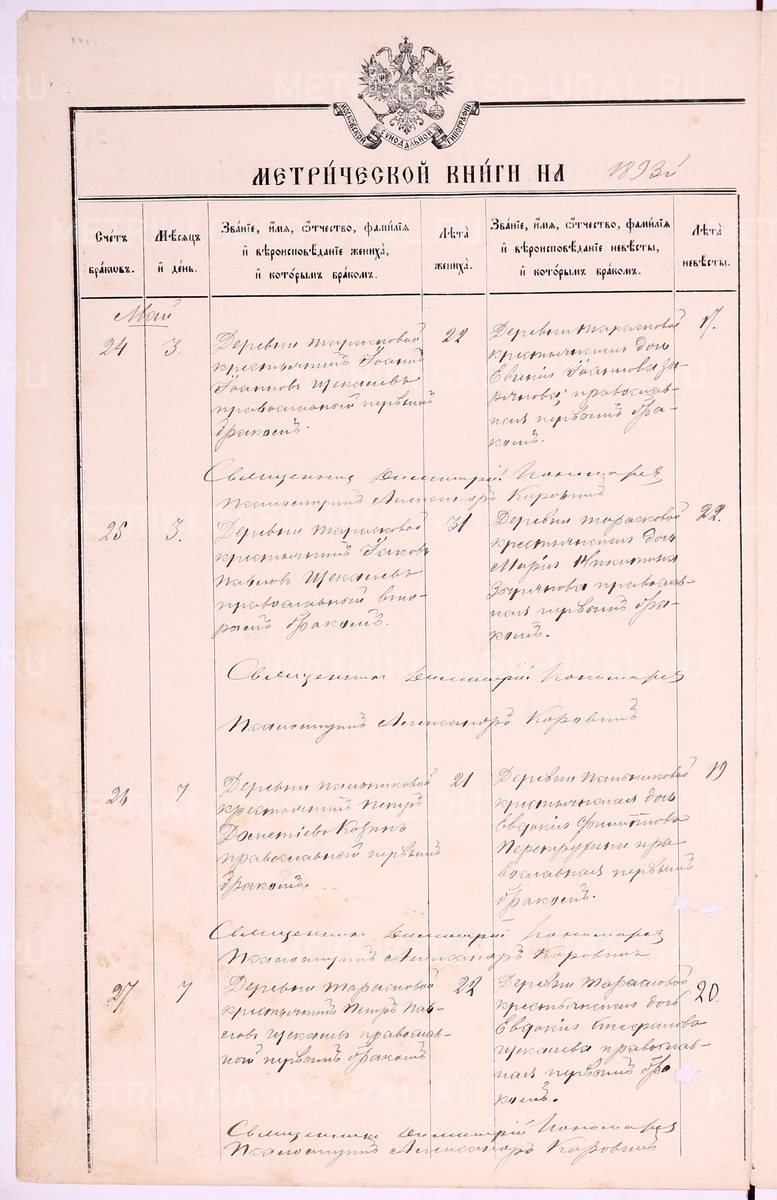 МОСКОВСКОЙ СѴНОДАЛЬНОЙ ТИПОГРАФІИ
МЕТРИ́ЧЕСКОЙ КНИ́ГИ НА 1893й
Сче́тъ бра́ковъ.
Мѣ́сяцъ и҆ де́нь.
Зва́нїе, и҆́мя, ѻ҆́тчество, фами́лїя и҆ вѣроисповѣ́данїе жениха̀, и҆ кото́рымъ бра́комъ.
Лѣ́та жениха̀.
Зва́нїе, и҆́мя, ѻ҆́тчество, фами́лїя и҆ вѣроисповѣ́данїе невѣ́сты, и҆ кото́рымъ бра́комъ.
Лѣ́та невѣ́сты.
Май
24
3.
Деревни Тарасковой
крестьянинъ Іоаннъ
Іоанновъ Щекалевъ
православный первымъ
бракомъ.
22
Деревни Тарасковой
крестьянская дочь
Евгенія Іоаннова Зы-
рянова, православ-
ная первымъ бра-
комъ.
17.
Священникъ Димитрій Пономаревъ
Псаломщикъ Александръ Коровинъ
25
3.
Деревни Тарасковой
крестьянинъ Іаковъ
Павловъ Щекалевъ
православный вто-
рымъ бракомъ.
31
Деревни Тарасковой
крестьянская дочь
Марія Никитина
Зырянова православ-
ная первымъ бра-
комъ.
22.
Священникъ Димитрій Пономаревъ
Псаломщикъ Александръ Коровинъ
26
7
Деревни Паньшиковой
крестьянинъ Петръ
Козинъ
православный первымъ
бракомъ.
21
Деревни Паньшиковой
крестьянская дочь
Евдокія Филиппова
пра-
вославная первымъ
бракомъ.
19
Священникъ Димитрій Пономаревъ
Псаломщикъ Александръ Коровинъ
27
7
Деревни Тарасковой
крестьянинъ Петръ Пав-
ловъ Щекалевъ православ-
ный первымъ бракомъ
22
Деревни Тарасковой
крестьянская дочь
Евдокія Стефанова
Щекалева православ-
ная первымъ бра-
комъ.
20.
Священникъ Димитрій Пономаревъ
Псаломщикъ Александръ Коровинъ
METRIKI.GASO-URAL.RU